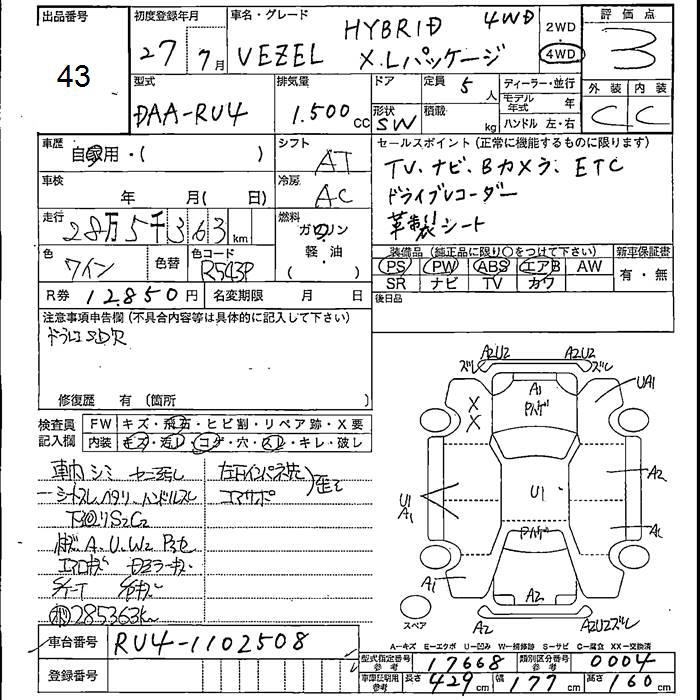 出品番号 初度登録年月 車名・グレード 2WD 評価点
43 27年7月 VEZEL HYBRID 4WD 4WD 3
X.Lパッケージ
型式 排気量 ドア 定員 5人 ディーラー・並行 外装 内装
DAA-RU4 1.500cc 形状 SW 積載 kg モデル年式 年 C C
ハンドル 左・右
車歴 自家用・( ) シフト AT セールスポイント (正常に機能するものに限ります)
車検 年 月( 日) 冷房 AC TV、ナビ、Bカメラ、ETC
ドライブレコーダー
走行 28万5千363km 燃料 ガソリン 革製シート
軽・油
( )
色 ワイン 色替 色コード R543P 装備品 (純正品に限り○をつけて下さい) 新車保証書
PS PW ABS エアB AW 有・無
SR ナビ TV カワ
R券 12,850円 名変期限 月 日 後日品
注意事項申告欄 (不具合内容等は具体的に記入して下さい)
ドラレコSD欠
修復歴 有 (箇所
検査員記入欄 FW キズ・飛石・ヒビ割・リペア跡・X要
内装 キズ・汚レ・コゲ・穴・スレ・キレ・破レ
車内シミ
シートスレ、ハンドルスレ
下回りS2C2
A、U、W2
285363km
A2U2 A2U2
ズレ ズレ
A1 UA1
X
X
A2
U1 U1
A1
A1
A2
A2 A2U2ズレ
スペア
A-キズ E-エクボ U-凹み W-補修跡 S-サビ C-腐食 XX-交換済
車台番号 RU4-1102508
型式指定番号参考 17668 類別区分番号参考 0004
登録番号
車庫証明用参考 長さ 429cm 幅 177cm 高さ 160cm